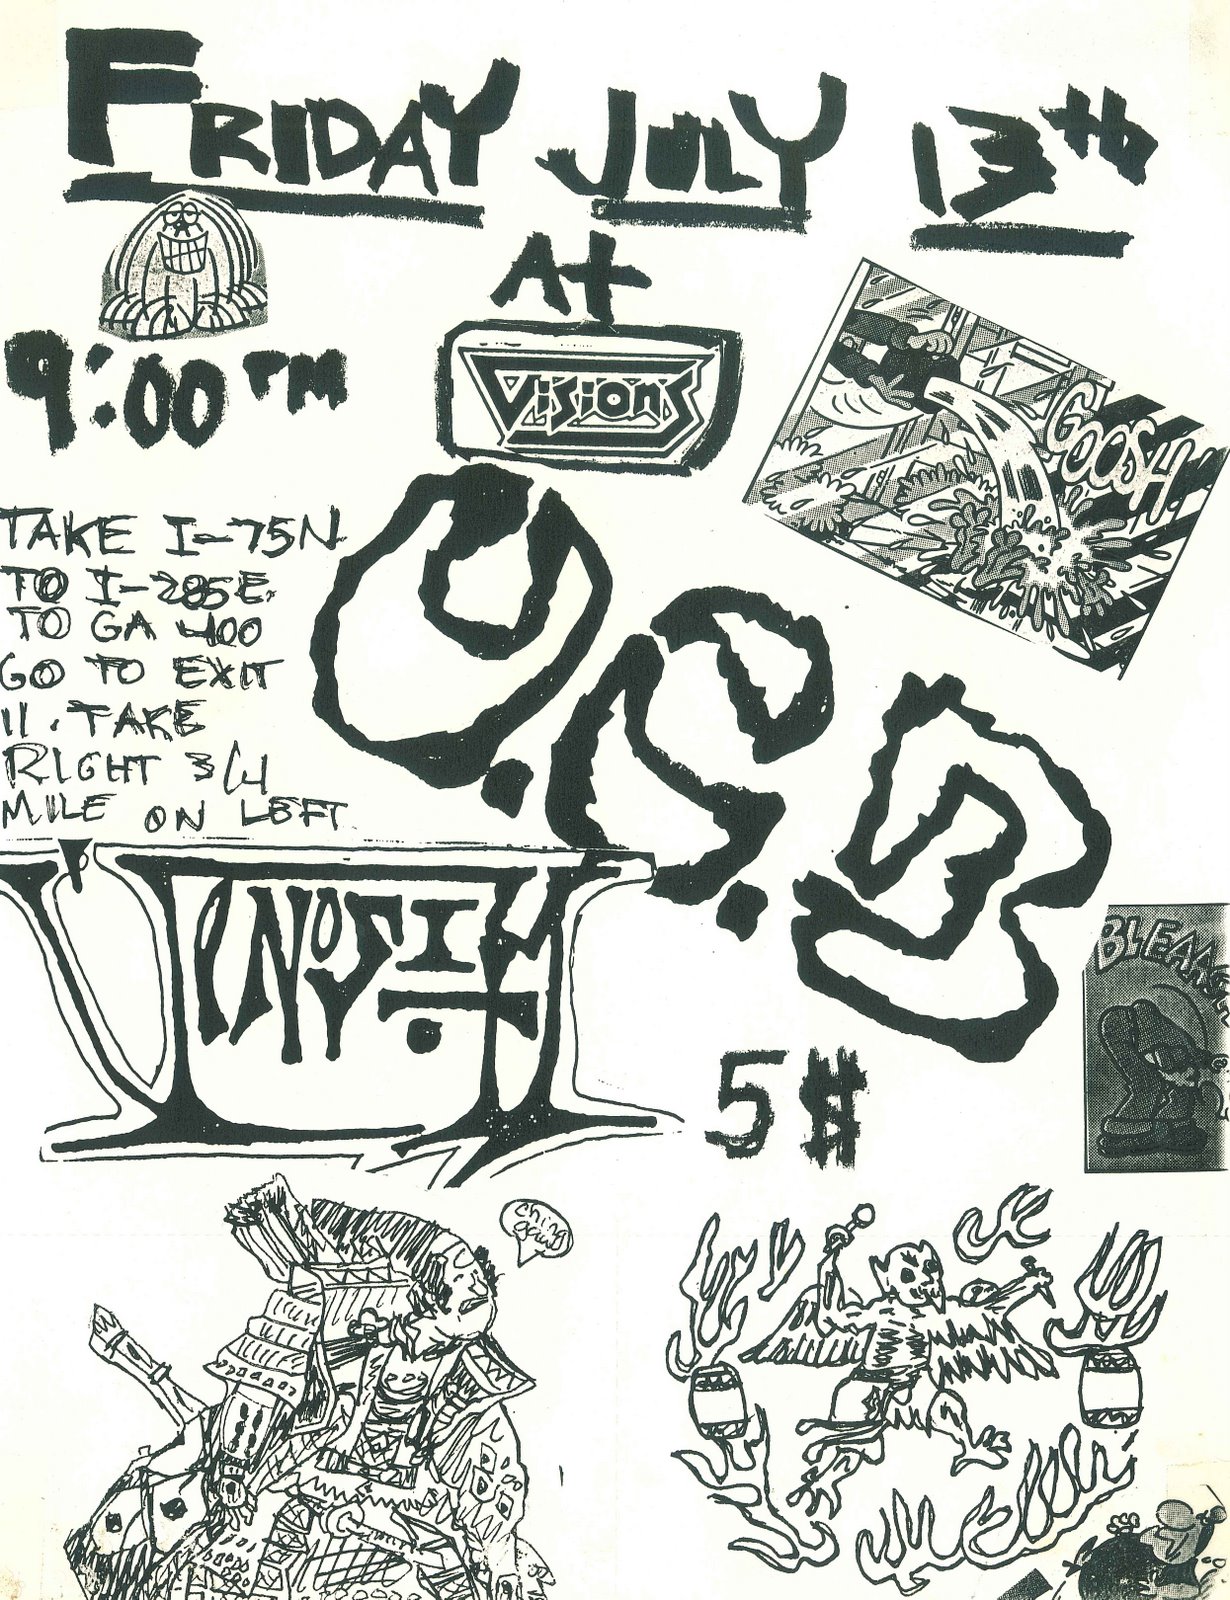 FRIDAY JULY 13th
At
9:00 PM
Visions
GOOSH
TAKE I-75N
TO I-285E.
TO GA 400
GO TO EXIT
11. TAKE
RIGHT 3/4
MILE ON LEFT
U.S.B
5$